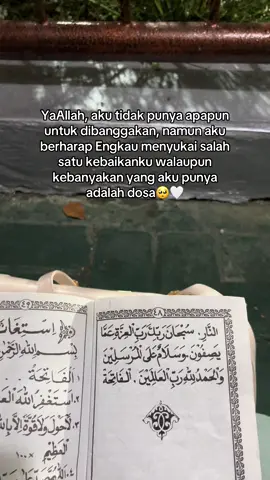 YaAllah, aku tidak punya apapun
untuk dibanggakan, namun aku
berharap Engkau menyukai salah
satu kebaikanku walaupun
kebanyakan yang aku punya
adalah dosa🥺🤍
٤٨
النَّارِ. سُبْحَانَ رَبِّكَ رَبِّ الْعِزَّةِ عَمَّا
يَصِفُوْنَ. وَسَلَامٌ عَلَى الْمُرْسَلِيْنَ
وَالْحَمْدُ لِلّٰهِ رَبِّ الْعَالَمِيْنَ. اَلْفَاتِحَةْ
٤٩
بِسْمِ اللهِ الرَّحْمٰنِ
١. اَلْفَاتِحَةْ
٢. اَسْتَغْفِرُ اللهَ
٣. لَاحَوْلَ وَلَا قُوَّةَ اِلَّا
الْعَظِيْمِ ١٠٠×